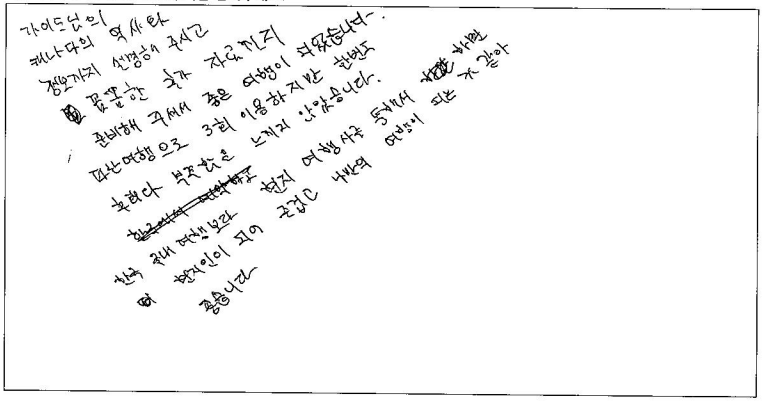 가이드님의
캐나다의 역사와
정보까지 설명해 주시고
꼼꼼한 추가 자료까지
준비해 주셔서 좋은 여행이 되었습니다.
여행으로 3회 이용하지만 한번도
후회나 부족함을 느끼지 않았습니다.
한국에서 예약하고
한국 국내 여행보다 현지 여행사를 통해서 하면
현지인이 되어 즐겁고 나만의 여행이 되는 것 같아
좋습니다